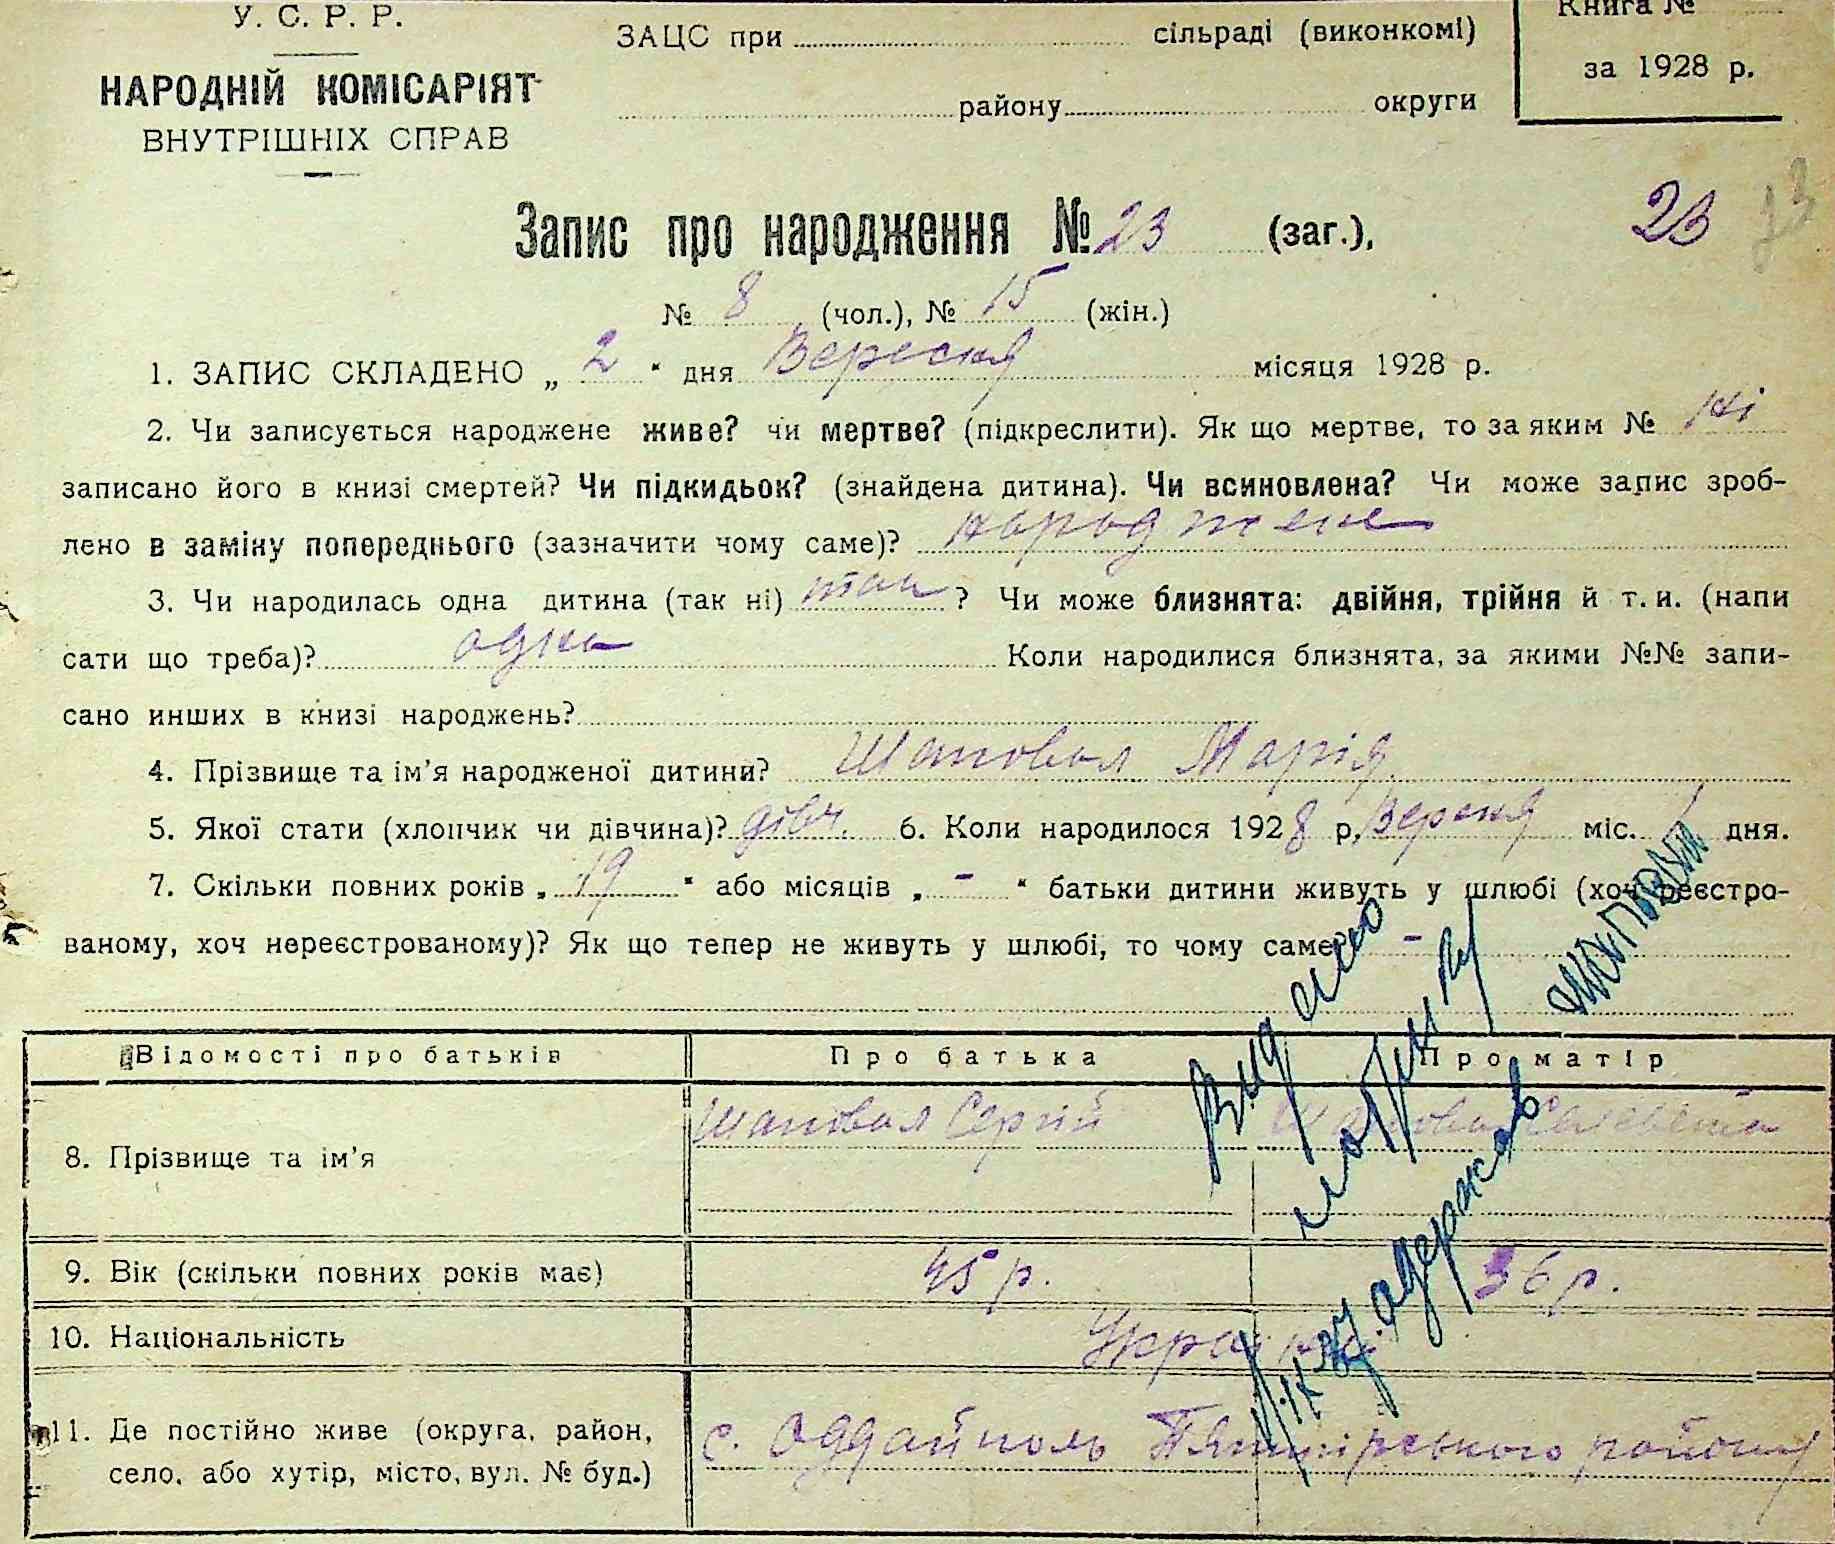 У. С. Р. Р.
НАРОДНІЙ КОМІСАРІЯТ
ВНУТРІШНІХ СПРАВ
ЗАЦС при сільраді (виконкомі)
району округи
Книга №
за 1928 р.
Запис про народження № 23 (заг.), 23
№ 8 (чол.), № 15 (жін.)
1. ЗАПИС СКЛАДЕНО „ 2 " дня Вересня місяця 1928 р.
2. Чи записується народжене живе? чи мертве? (підкреслити). Як що мертве, то за яким № ні
записано його в книзі смертей? Чи підкидьок? (знайдена дитина). Чи всиновлена? Чи може запис зроб-
лено в заміну попереднього (зазначити чому саме)? народжене
3. Чи народилась одна дитина (так ні) так ? Чи може близнята: двійня, трійня й т. и. (напи
сати що треба)? одна Коли народилися близнята, за якими №№ запи-
сано инших в книзі народжень?
4. Прізвище та ім'я народженої дитини? Шаповал Марія
5. Якої стати (хлопчик чи дівчина)? дівч. 6. Коли народилося 1928 р. Вересня міс. 1 дня.
7. Скільки повних років „ 19 " або місяців „ - " батьки дитини живуть у шлюбі (хоч реєстро-
ваному, хоч нереєстрованому)? Як що тепер не живуть у шлюбі, то чому саме? -
Відомості про батьків Про батька Про матір
8. Прізвище та ім'я Шаповал Сергій Шаповал
9. Вік (скільки повних років має) 45 р. 36 р.
10. Національність
11. Де постійно живе (округа, район, с. Оддайполь району
село, або хутір, місто, вул. № буд.)
Видано
метрику